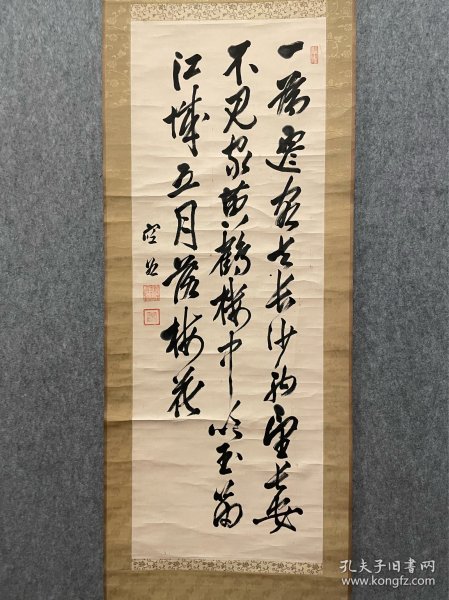 一為遷客去長沙西望長安
不見家黄鶴樓中吹玉笛
江城五月落梅花
孔夫子旧书网
www.kongfz.com